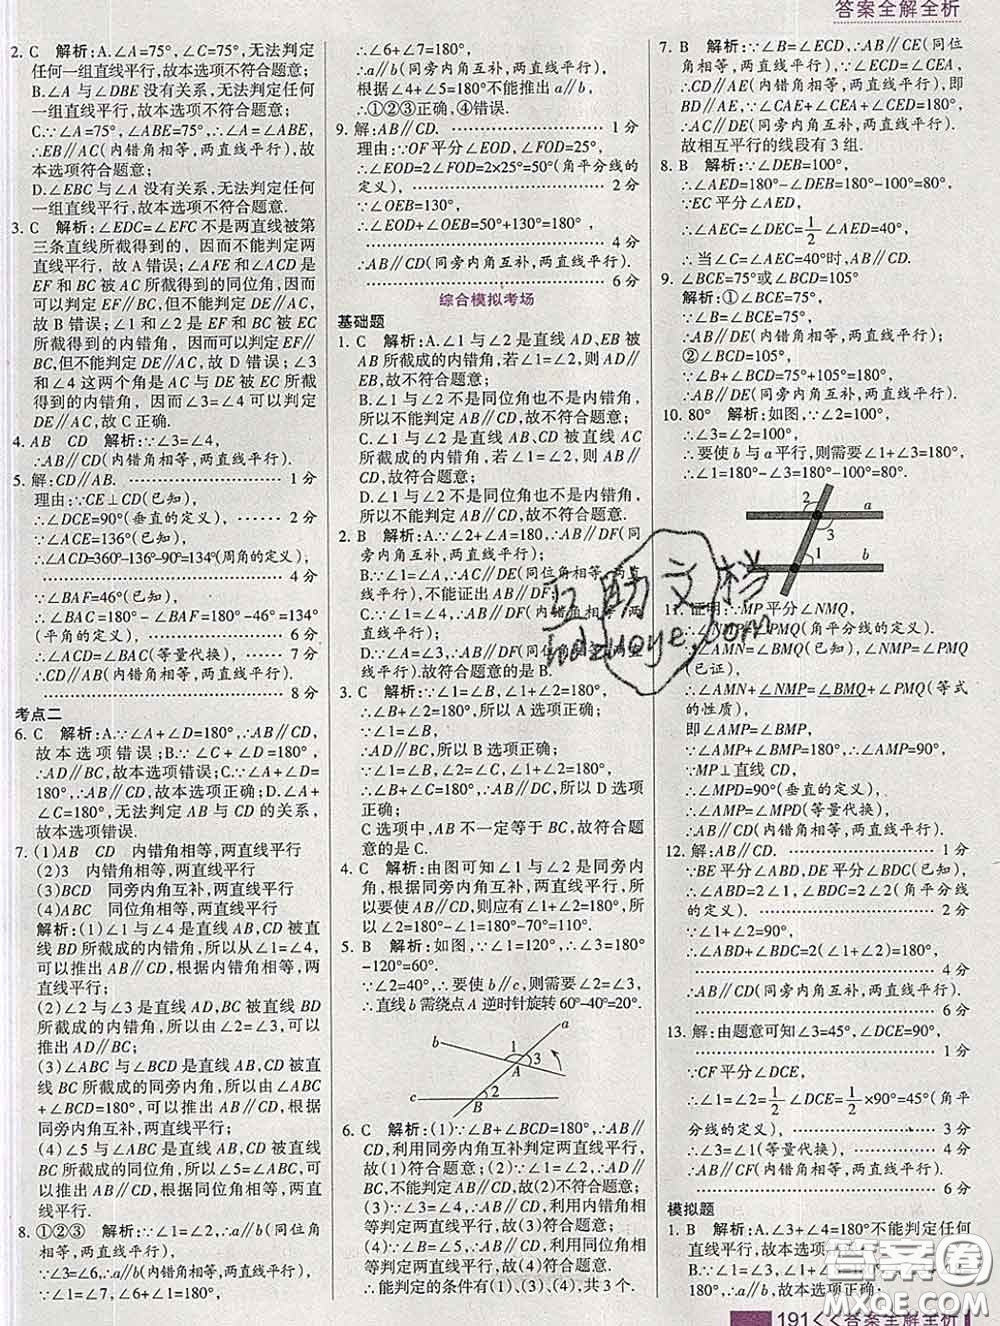 答案全解全析
2. C 解析:A.∠A=75°,∠C=75°,无法判定
任何一组直线平行,故本选项不符合题意;
B.∠A 与∠DBE 没有关系,无法判定任何
一组直线平行,故本选项不符合题意;
C.∵∠A=75°,∠ABE=75°,∴∠A=∠ABE,
∴EB∥AC(内错角相等,两直线平行),故本
选项符合题意;
D.∠EBC 与∠A 没有关系,无法判定任何
一组直线平行,故本选项不符合题意.
3. C 解析:∠EDC=∠EFC 不是两直线被第
三条直线所截得到的,因而不能判定两
直线平行,故 A 错误;∠AFE 和∠ACD 是
EF 和 BC 被 AC 所截得到的同位角,因而
可以判定 EF∥BC,但不能判定 DE∥AC,
故 B 错误;∠1 和∠2 是 EF 和 BC 被 DE
所截得到的内错角,因而可以判定 EF∥
BC,但不能判定 DE∥AC,故 D 错误;∠3
和∠4 这两个角是 AC 与 DE 被 EC 所截
得到的内错角,因而∠3=∠4 可以判定
DE∥AC,故 C 正确.
4. AB CD 解析:∵∠3=∠4,
∴AB∥CD(内错角相等,两直线平行).
5. 解:CD∥AB. 1 分
理由:∵CE⊥CD(已知),
∴∠DCE=90°(垂直的定义), 2 分
∵∠ACE=136°(已知),
∴∠ACD=360°-136°-90°=134°(周角的定义),
4 分
∵∠BAF=46°(已知),
∴∠BAC=180°-∠BAF=180°-46°=134°
(平角的定义), 6 分
∴∠ACD=∠BAC(等量代换),
∴CD∥AB(内错角相等,两直线平行).
8 分
考点二
6. C 解析:A.∵∠A+∠D=180°,∴AB∥CD,
故本选项错误;B.∵∠C+∠D=180°,
∴AD∥BC,故本选项错误;C.∵∠A+∠D=
180°,∴AB∥CD,故本选项正确;D.∠A+
∠C=180°,无法判定 AB 与 CD 的关系,
故本选项错误.
7. (1)AB CD 内错角相等,两直线平行
(2)3 内错角相等,两直线平行
(3)BCD 同旁内角互补,两直线平行
(4)ABC 同位角相等,两直线平行
解析:(1)∠1 与∠4 是直线 AB,CD 被直
线 BD 所截成的内错角,所以从∠1=∠4,
可以推出 AB∥CD,根据内错角相等,两
直线平行;
(2)∠2 与∠3 是直线 AD,BC 被直线 BD
所截成的内错角,所以由∠2=∠3,可以推
出 AD∥BC,根据内错角相等,两直线平行;
(3)∠ABC 与∠BCD 是直线 AB,CD 被直
线 BC 所截成的同旁内角,所以∠ABC+
∠BCD=180°,可以推出 AB∥CD,根据同
旁内角互补,两直线平行;
(4)∠5 与∠ABC 是直线 AB,CD 被直线
BC 所截成的同位角,所以由∠5=∠ABC,
可以推出 AB∥CD,根据同位角相等,两
直线平行.
8. ①②③ 解析:∵∠1=∠2,∴a∥b(同位角
相等,两直线平行),
∵∠3=∠6,∴a∥b(内错角相等,两直线平行),
∵∠4+∠7=180°,∠4=∠6,
∴∠6+∠7=180°,
∴a∥b(同旁内角互补,两直线平行),
根据∠4+∠5=180°不能推出 a∥b,
∴①②③正确,④错误.
9. 解:AB∥CD. 1 分
理由:∵OF 平分∠EOD,∠FOD=25°,
∴∠EOD=2∠FOD=2×25°=50°(角平分线的
定义), 2 分
∵∠OEB=130°,
∴∠EOD+∠OEB=50°+130°=180°,
4 分
∴AB∥CD(同旁内角互补,两直线平行).
6 分
综合模拟考场
基础题
1. C 解析:A.∠1 与∠2 是直线 AD,EB 被
AB 所截成的内错角,若∠1=∠2,则 AD∥
EB,故不符合题意;
B.∠1 与∠2 不是同位角也不是内错角,
所以不能判定 AB∥CD,故不符合题意;
C.∠1 与∠2 是直线 AB,CD 被直线 AC
所截成的内错角,若∠1=∠2,则 AB∥
CD,故符合题意;
D.∠1 与∠2 不是同位角也不是内错角,
所以不能判定 AB∥CD,故不符合题意.
2. B 解析:A.∵∠2+∠A=180°,∴AB∥DF(同
旁内角互补,两直线平行);
B.∵∠1=∠A,∴AC∥DE(同位角相等,两直线
平行),不能证出 AB∥DF;
C.∵∠1=∠4,∴AB∥DF(内错角相等,两直
线平行);
D.∵∠A=∠3,∴AB∥DF(同位角相等,两直
线平行).故符合题意的是 B.
3. C 解析:∵∠1=∠B,∠1+∠2=180°,
∴∠B+∠2=180°;所以 A 选项正确;
∵AD∥BC,∴∠1=∠B,
∴∠B+∠2=180°,所以 B 选项正确;
∵∠1=∠B,
∵∠1+∠2=180°,
∴∠B+∠2=180°;所以 D 选项正确;
C 选项中,AB 不一定等于 BC,故符合题
意的是 C.
4. C 解析:由图可知∠1 与∠2 是同旁内角,
所以要使 AB∥CD,则应有∠1+∠2=180°,
所以∠2=180°-∠1=180°-70°=110°.
5. B 解析:如图,∵∠1=120°,∴∠3=180°
-120°=60°.
∵∠2=40°,∴要使 b∥c,则需要∠2=∠3,
∴直线 b 需绕点 A 逆时针旋转 60°-40°=20°.
a
b
1
3
A
c
2
B
6. C 解析:(1)∵∠B+∠BCD=180°,∴AB∥
CD,利用同旁内角互补判定两直线平行,
故(1)符合题意;(2)∵∠1=∠2,∴AD∥
BC,故(2)不符合题意;(3)∵∠3=
∠4,∴AB∥CD,符合题意,利用内错角相
等判定两直线平行,故(3)符合题意;
(4)∵∠B=∠5,∴AB∥CD,符合题意,
利用同位角相等判定两直线平行,
故(4)符合题意.
∴能判定的条件有(1)、(3)、(4),共 3 个.
7. B 解析:∵∠B=∠ECD,∴AB∥CE(同位
角相等,两直线平行),∵∠ECD=∠CEA,
∴CD∥AE(内错角相等,两直线平行),即
BD∥AE,∵∠CAE+∠CEA+∠ECD=180°,
∴AC∥DE(同旁内角互补,两直线平行).
故相互平行的线段有 3 组.
8. B 解析:∵∠DEB=100°,
∴∠AED=180°-∠DEB=180°-100°=80°,
∵EC 平分∠AED,
∴∠AEC=∠DEC=1/2∠AED=40°,
∴当∠C=∠AEC=40°时,AB∥CD.
9. ∠BCE=75°或∠BCD=105°
解析:①∠BCE=75°,
∵∠ABC=75°,∴∠BCE=∠ABC=75°,
∴AB∥CE(内错角相等,两直线平行);
②∠BCD=105°,
∵∠ABC+∠BCD=75°+105°=180°,
∴AB∥CD(同旁内角互补,两直线平行).
10. 80° 解析:如图,∵∠2=100°,
∴要使 b 与 a 平行,则∠1+∠2=180°,
∴∠1=180°-∠2=180°-100°=80°.
2
a
3
1
b
11. 证明:∵MP 平分∠NMQ,
∴∠NMP=∠PMQ(角平分线的定义),
∵∠AMN=∠BMQ(已知),∠NMP=∠PMQ
(已证),
∴∠AMN+∠NMP=∠BMQ+∠PMQ(等式
的性质),
即∠AMP=∠BMP,
∵∠AMP+∠BMP=180°,∴∠AMP=90°,
∵MP⊥直线 CD,
∴∠MPD=90°(垂直的定义),
∴∠AMP=∠MPD(等量代换),
∴AB∥CD(内错角相等,两直线平行).
12. 解:AB∥CD. 1 分
∵BE 平分∠ABD,DE 平分∠BDC(已知),
∴∠ABD=2∠1,∠BDC=2∠2(角平分线
的定义). 2 分
∵∠1+∠2=90°,
∴∠ABD+∠BDC=2(∠1+∠2)=180°,
4 分
∴AB∥CD(同旁内角互补,两直线平行).
6 分
13. 解:由题意可知∠3=45°,∠DCE=90°,
1 分
∵CF 平分∠DCE,
∴∠1=∠2=1/2∠DCE=1/2×90°=45°(角平
分线的定义), 3 分
∴∠1=∠3(等量代换),
∴AB∥CF(内错角相等,两直线平行).
6 分
模拟题
1. B 解析:A.∠3+∠4=180°不能判定任何
直线平行,故本选项
B.∵∠1=∠2,∴AB∥
等,故本选项正确;
互助文档
hdzuoye.com
答案圈
MXQE.COM
191<<答案全解全析